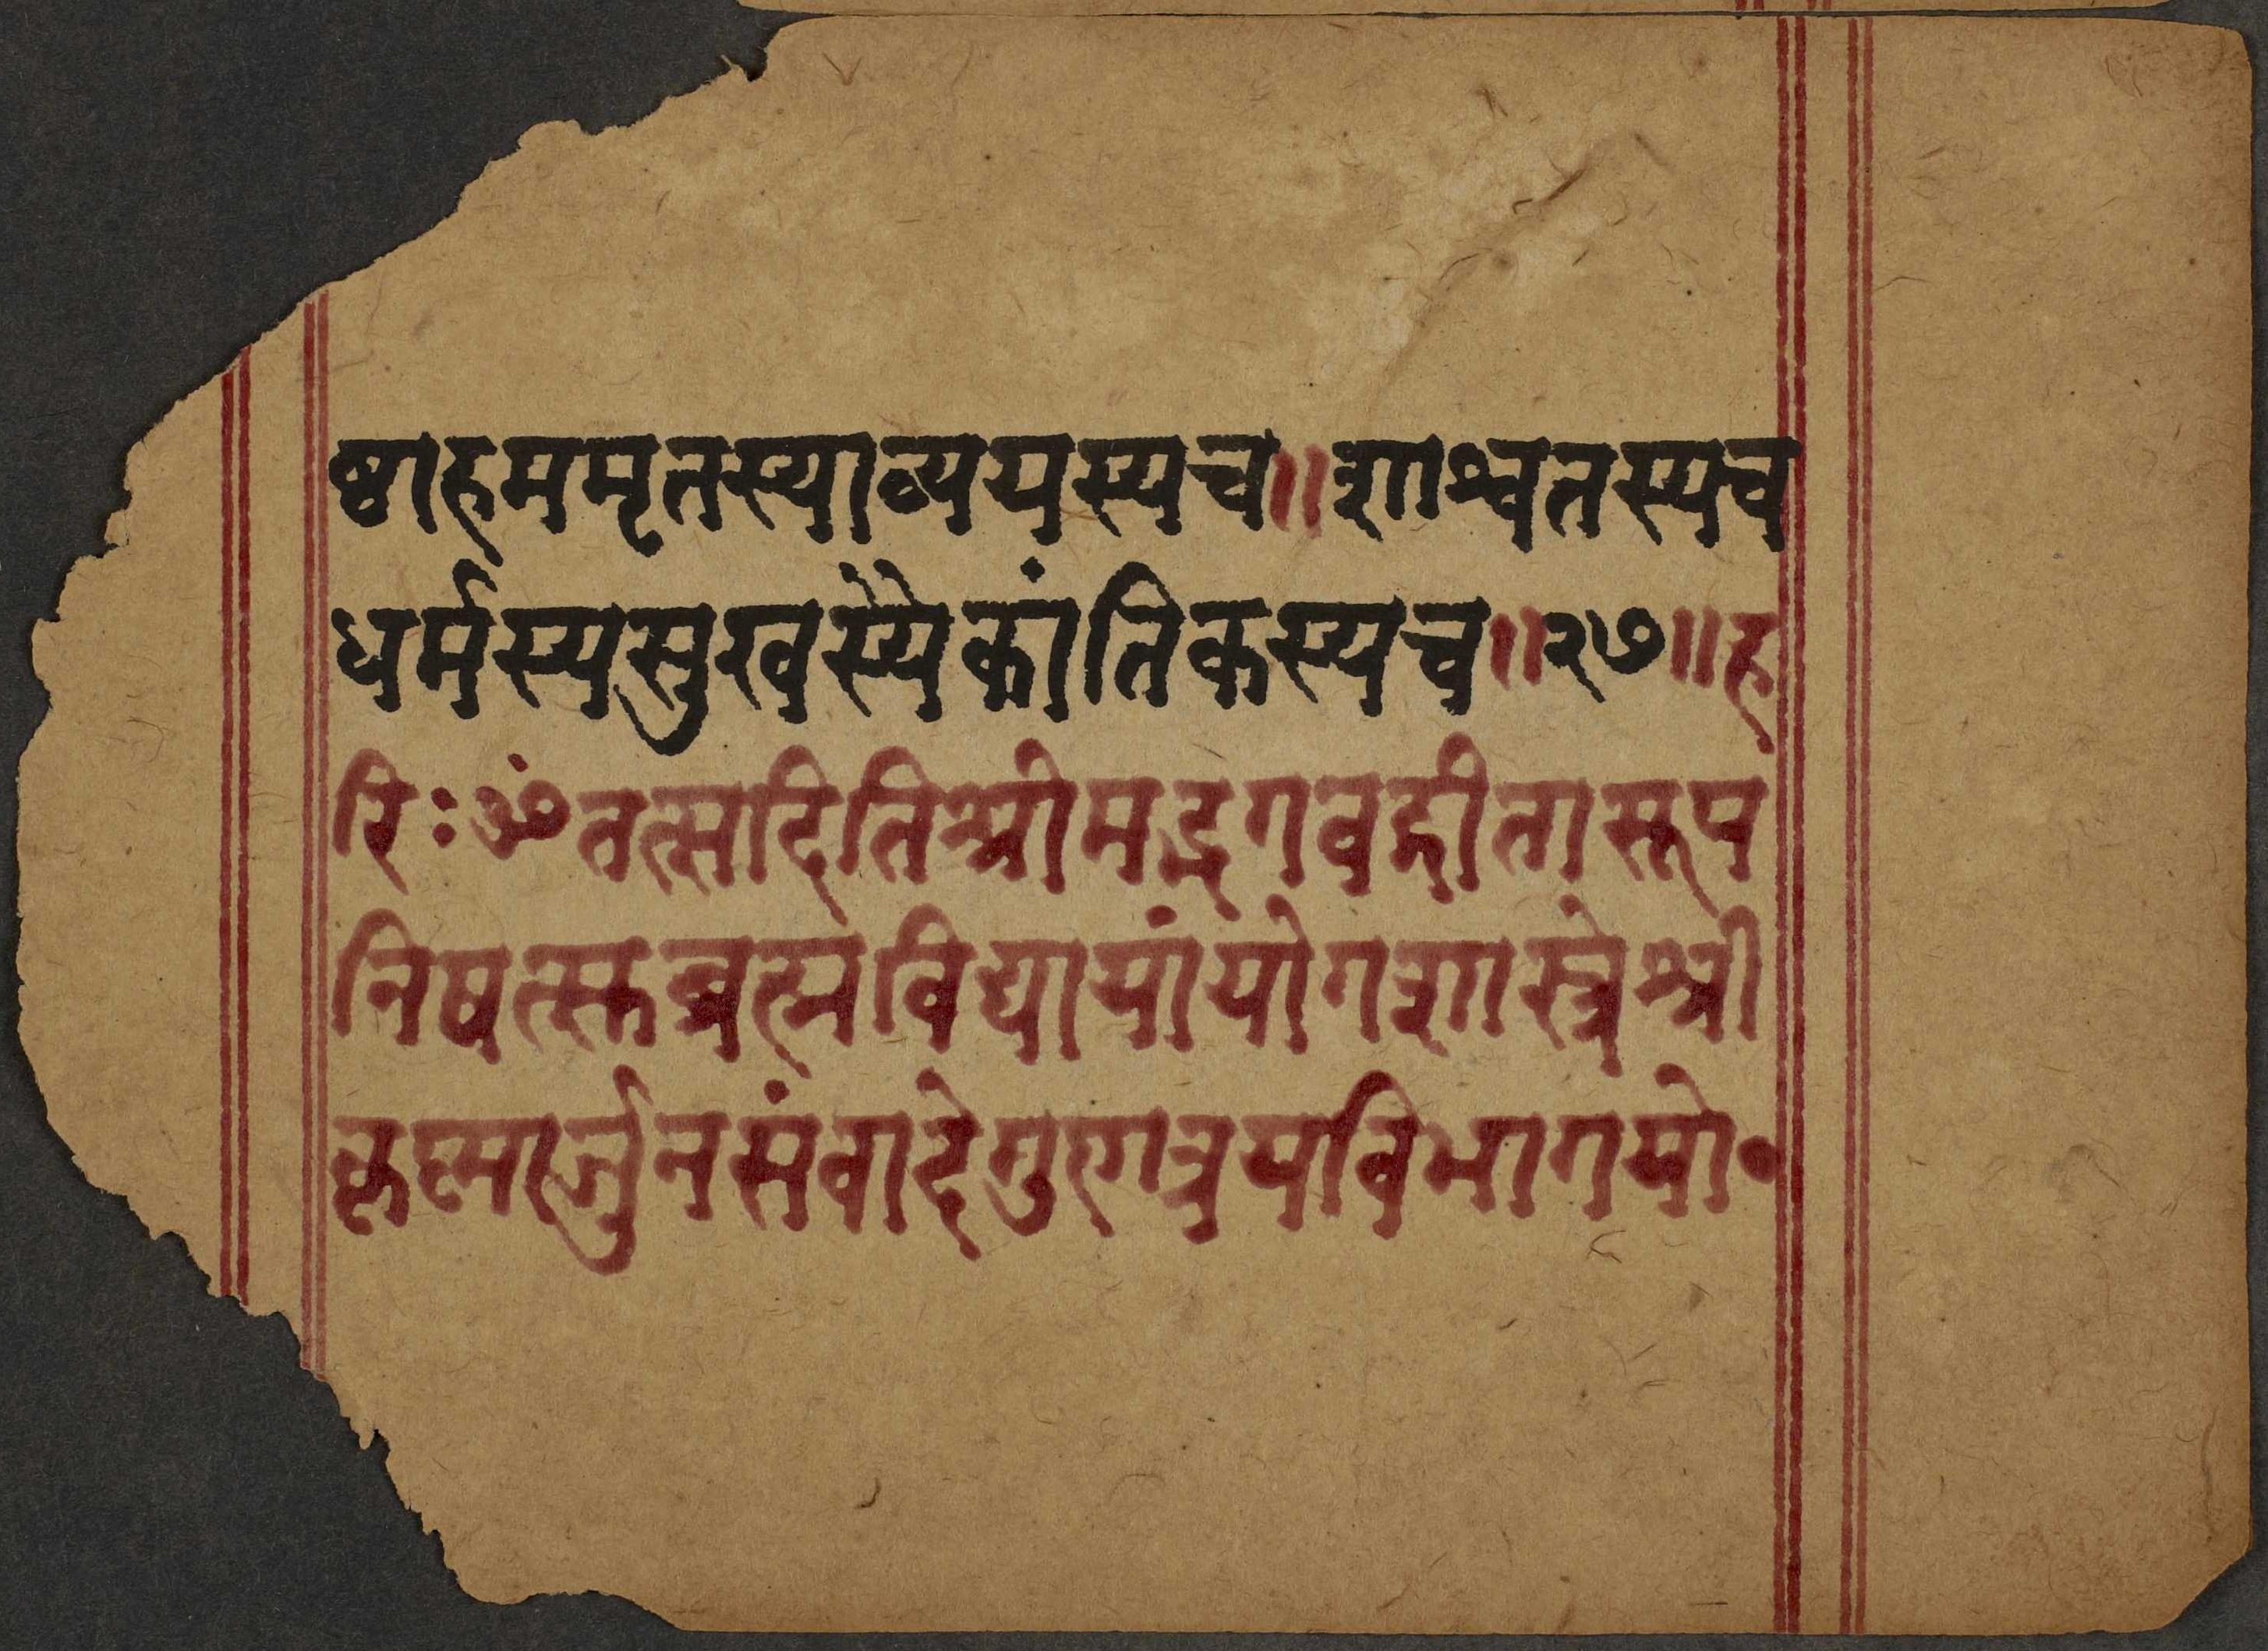 ष्ठाहममृतस्याव्ययस्यच॥शाश्वतस्यच
धर्मस्यसुखस्यैकांतिकस्यच॥२७॥ह
रिःॐतत्सदितिश्रीमद्भगवद्गीतासूप
निषत्सुब्रह्मविद्यायांयोगशास्त्रेश्री
कृष्णार्जुनसंवादेगुणत्रयविभागयो॰